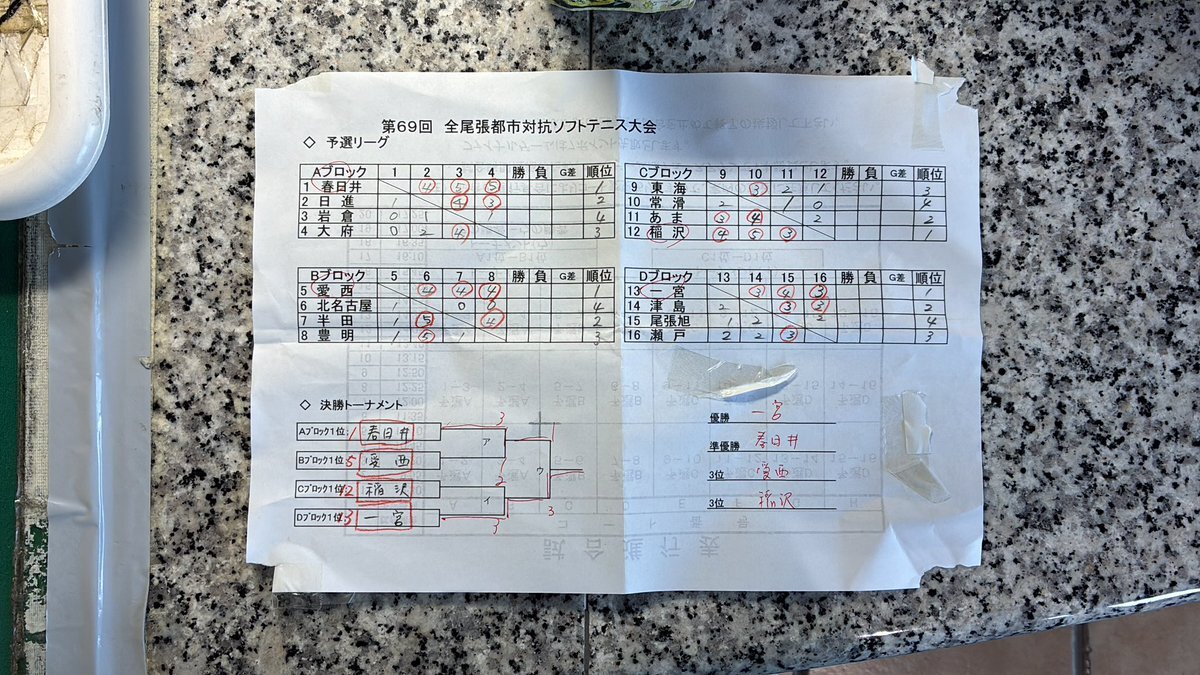 第69回 全尾張都市対抗ソフトテニス大会
◇ 予選リーグ
Aブロック 1 2 3 4 勝 負 G差 順位
1 春日井 ④ ⑤ ⑤ 1
2 日進 1 ④ ③ 2
3 岩倉 0 1 1 4
4 大府 0 2 ④ 3
Bブロック 5 6 7 8 勝 負 G差 順位
5 愛西 ④ ④ ④ 1
6 北名古屋 1 0 0 4
7 半田 1 ⑤ ④ 2
8 豊明 1 ⑤ 1 3
Cブロック 9 10 11 12 勝 負 G差 順位
9 東海 ③ 2 1 3
10 常滑 2 1 0 4
11 あま ③ ④ 2 2
12 稲沢 ④ ⑤ ③ 1
Dブロック 13 14 15 16 勝 負 G差 順位
13 一宮 ③ ④ ③ 1
14 津島 2 ③ ③ 2
15 尾張旭 1 2 2 4
16 瀬戸 2 2 ③ 3
◇ 決勝トーナメント
Aブロック1位 1 春日井
Bブロック1位 5 愛西
Cブロック1位 12 稲沢
Dブロック1位 13 一宮
3
ア
2
イ
3
1
ウ
3
優勝 一宮
準優勝 春日井
3位 愛西
3位 稲沢